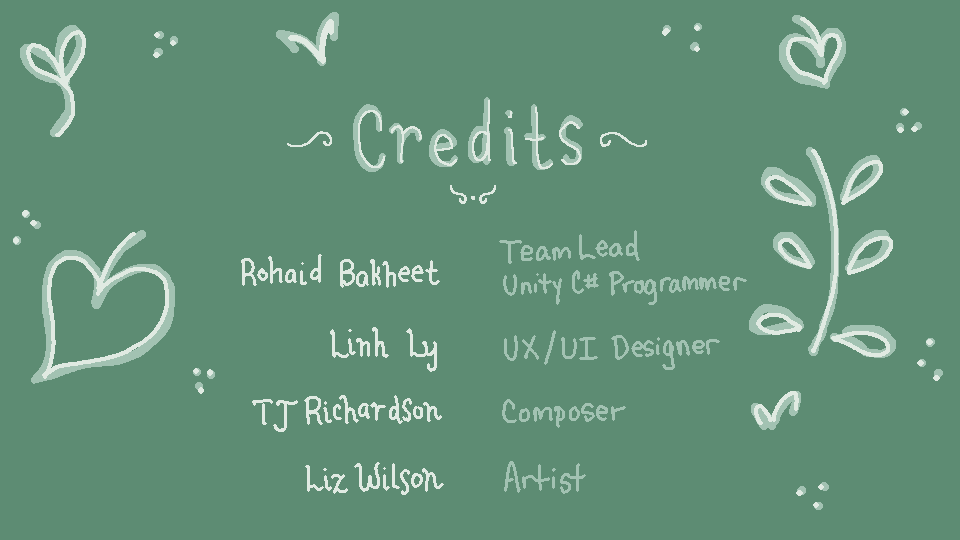 Credits
Rohaid Bakheet
Team Lead
Unity C# Programmer
Linh Ly
UX/UI Designer
TJ Richardson
Composer
Liz Wilson
Artist